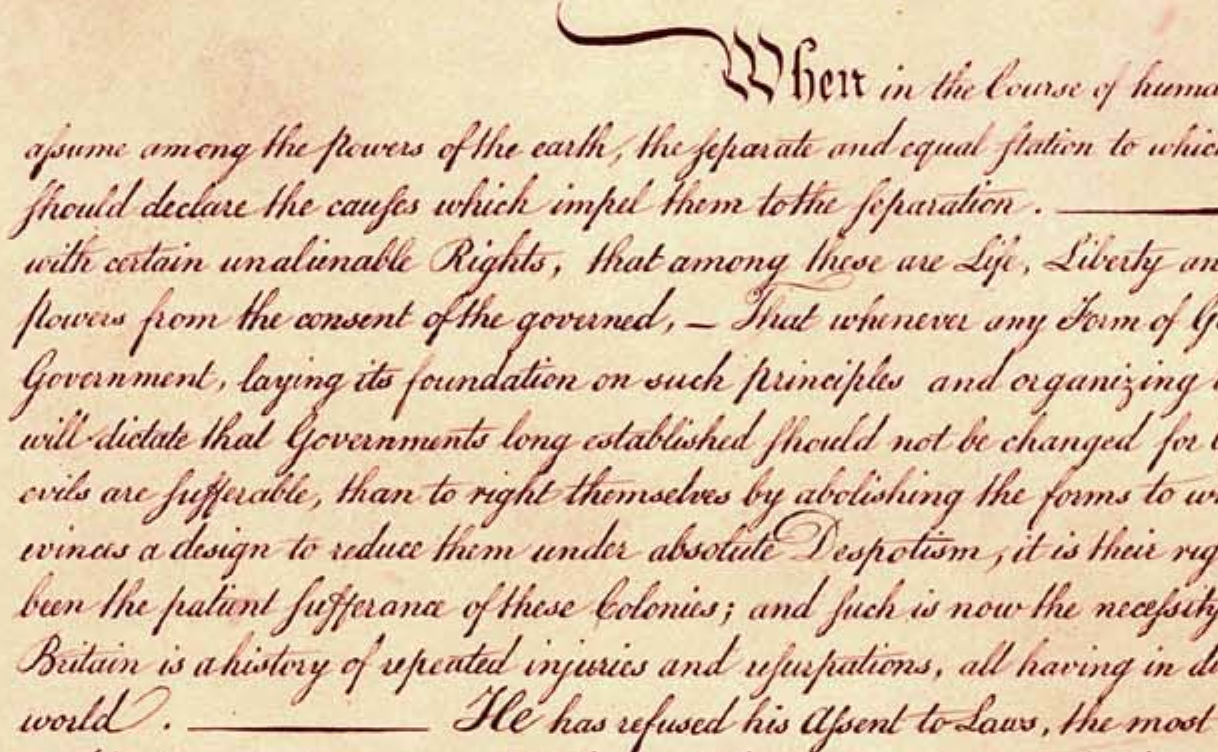 When in the Course of huma
aſsume among the powers of the earth, the ſeparate and equal ſtation to which
ſhould declare the cauſes which impel them to the ſeparation. ———
with certain unalienable Rights, that among these are Life, Liberty an
powers from the consent of the governed, — That whenever any Form of Go
Government, laying its foundation on such principles and organizing
will dictate that Governments long established ſhould not be changed for
evils are ſufferable, than to right themselves by abolishing the forms to w
evinces a design to reduce them under absolute Despotism, it is their rig
been the patient ſufferance of these Colonies; and ſuch is now the neceſsity
Britain is a history of repeated injuries and uſurpations, all having in di
world. ——— He has refused his Aſsent to Laws, the most